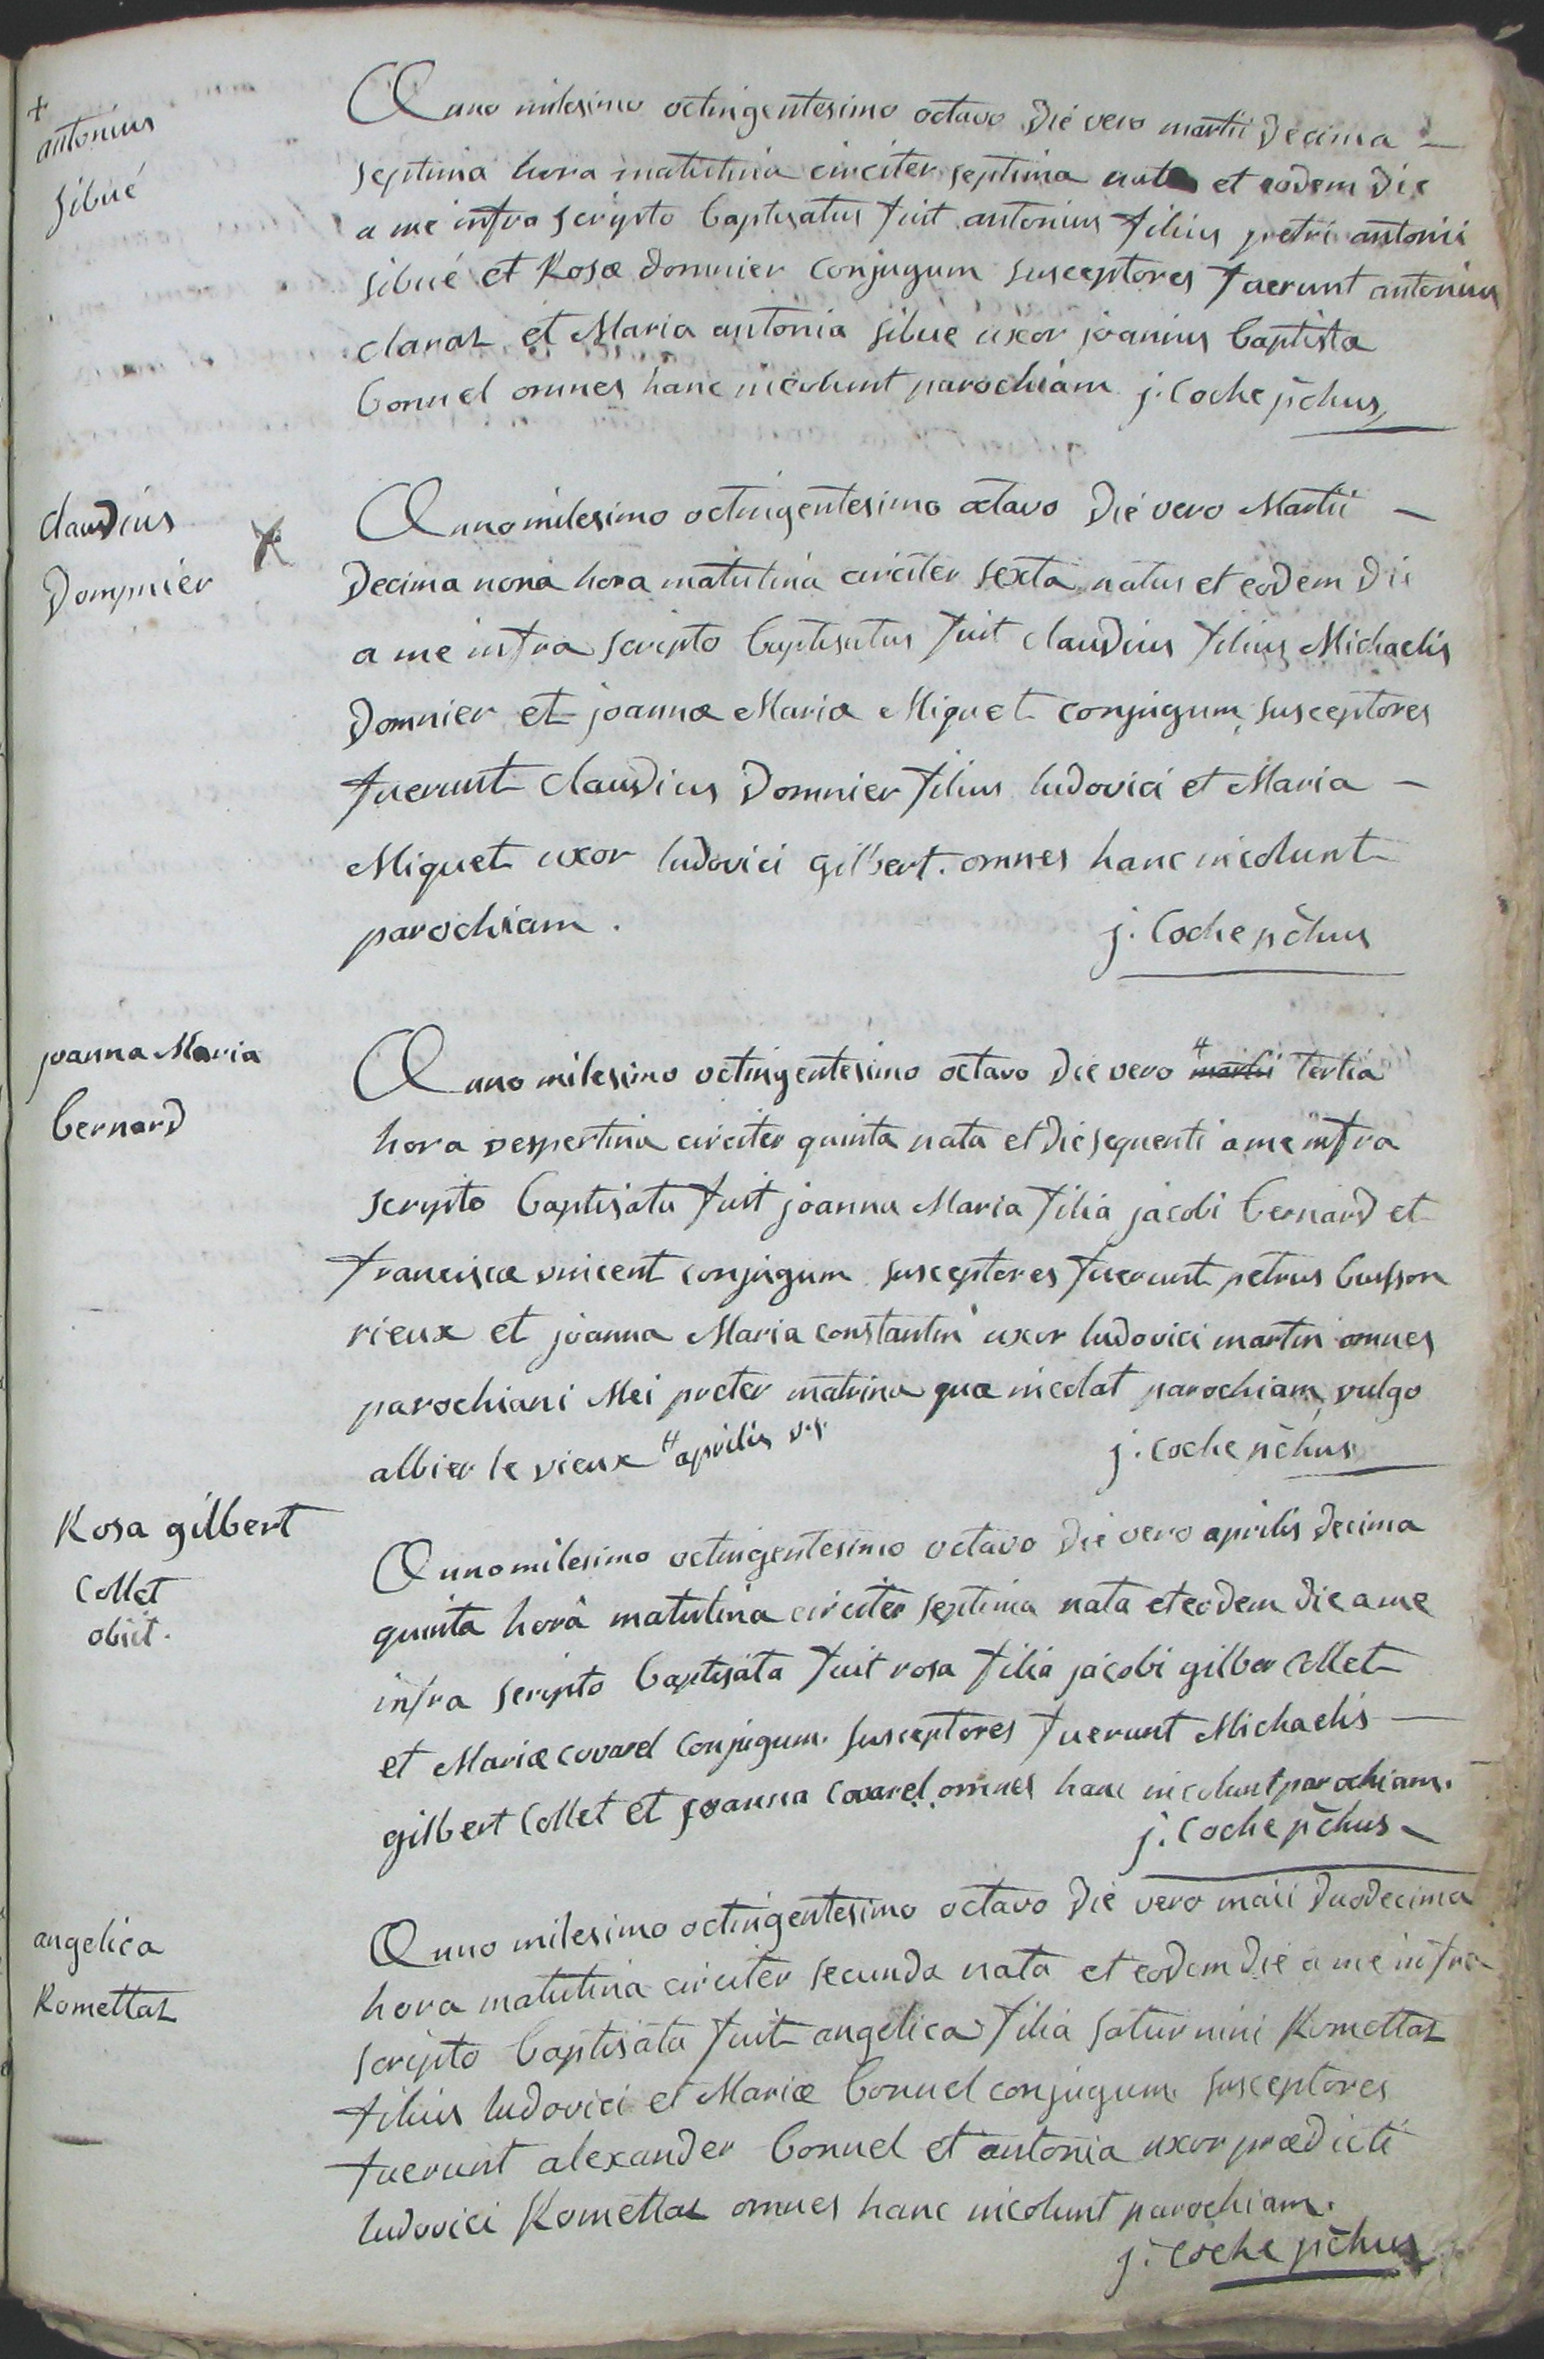 +
antonius
sibué
Anno milesimo octingentesimo octavo die vero martii decima –
septima hora matutina circiter septima natus et eodem die
a me infra scripto baptisatus fuit antonius filius petri antonii
sibué et Rosæ domnier conjugum susceptores fuerunt antonius
claraz et Maria antonia sibue uxor joannis baptista
bonnel omnes hanc incolunt parochiam j. Coche p̃chus
claudius
Dompnier
Anno milesimo octingentesimo octavo die vero Martii –
Decima nona hora matutina circiter sexta natus et eodem die
a me infra scripto baptisatus fuit claudius filius Michaelis
Domnier et joannæ Mariæ Miquet conjugum, susceptores
fuerunt claudius Domnier filius ludovici et Maria –
Miquet uxor ludovici gilbert. omnes hanc incolunt
parochiam.
j. Coche p̃chus
joanna Maria
bernard
Anno milesimo octingentesimo octavo die vero " martii tertia
hora vespertina circiter quinta nata et die sequenti a me infra
scripto baptisata fuit joanna Maria filia jacobi bernard et
franciscæ vincent conjugum susceptores fuerunt petrus buisson
rieux et joanna Maria constantin uxor ludovici martin omnes
parochiani Mei preter matrina quæ incolat parochiam vulgo
albier le vieux " aprilis
j. coche p̃chus
Rosa gilbert
Collet
obiit.
Anno milesimo octingentesimo octavo die vero aprilis decima
quinta horâ matutina circiter septima nata et eodem die a me
infra scripto baptisata fuit rosa filia jacobi gilber Collet
et Mariæ covarel conjugum. susceptores fuerunt Michaelis –
gilbert Collet et joanna covarel omnes hanc incolunt parochiam.
j. Coche p̃chus
angelica
Romettaz
Anno milesimo octingentesimo octavo die vero maii duodecima
hora matutina circiter secunda nata et eodem die a me infra
scripto baptisata fuit angelica filia saturnini Romettaz
filius ludovici et Mariæ bonnel conjugum susceptores
fuerunt alexander bonnel et antonia uxor prædicti
ludovici Romettaz omnes hanc incolunt parochiam.
j. coche p̃chus